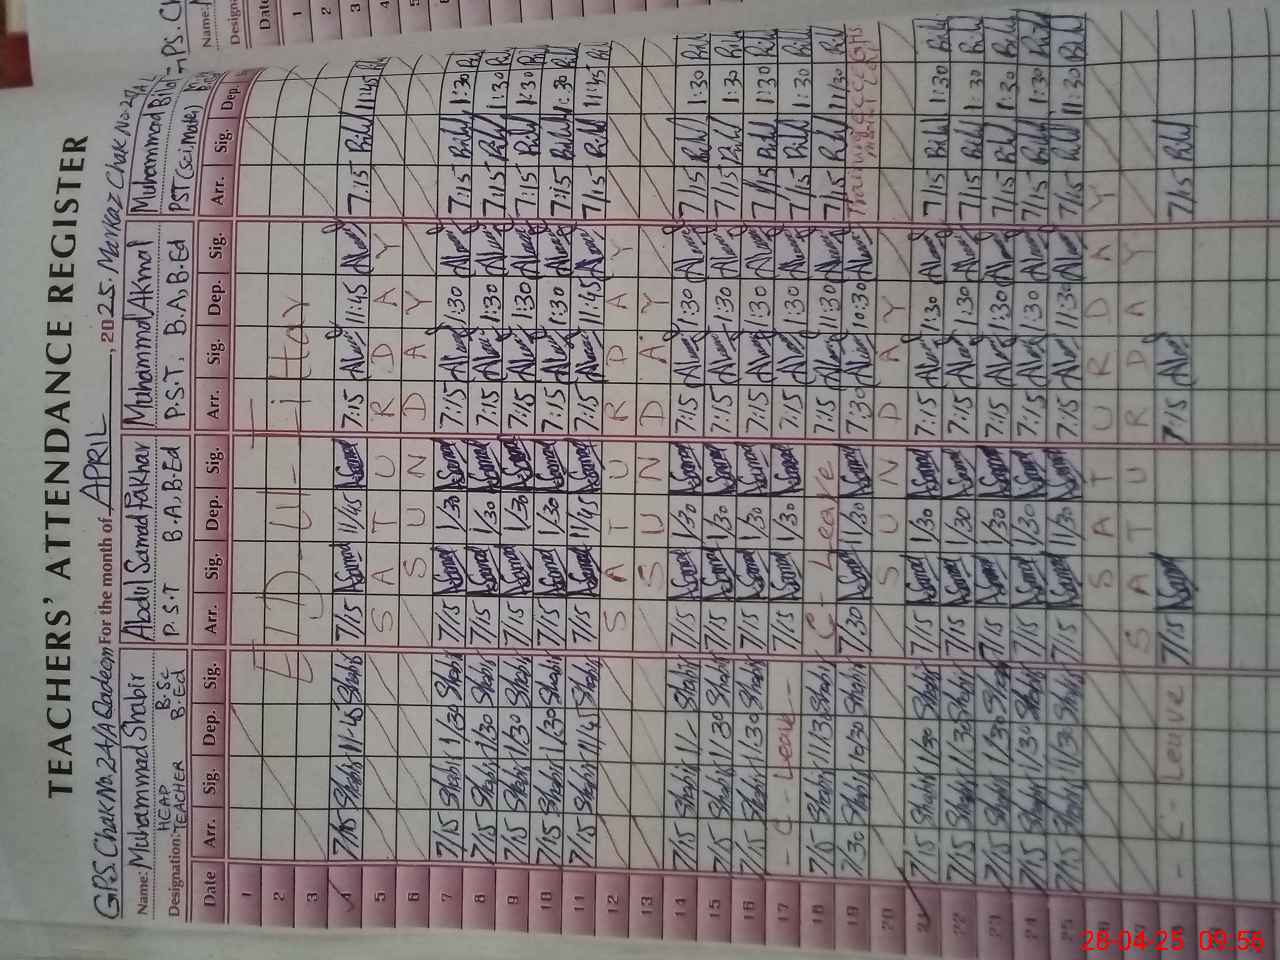 TEACHERS' ATTENDANCE REGISTER
GPS. Chak No. 24/A Qadeem For the month of APRIL, 2025. Markaz Chak No. 24/A
Name: Muhammad Shabir Abdul Samad Fakhar Muhammad Akmal Muhammad Bilal
Designation: HEAD TEACHER B.Sc B.Ed P.S.T B.A, B.Ed P.S.T, B.A, B.Ed PST (Sci, Math)
Date Arr. Sig. Dep. Sig. Arr. Sig. Dep. Sig. Arr. Sig. Dep. Sig. Arr. Sig. Dep.
1
2 EID-Ul-Fitar
3
4 7/15 Shabir 11-45 Shabir 7/15 Samad 11/45 Samad 7:15 11:45 7:15 Bilal 11:45
5 SATURDAY
6 SUNDAY
7 7/15 Shabir 1/30 Shabir 7/15 Samad 1/30 Samad 7:15 1:30 7:15 Bilal 1:30
8 7/15 Shabir 1/30 Shabir 7/15 Samad 1/30 Samad 7:15 1:30 7:15 Bilal 1:30
9 7/15 Shabir 1/30 Shabir 7/15 Samad 1/30 Samad 7:15 1:30 7:15 Bilal 1:30
10 7/15 Shabir 1/30 Shabir 7/15 Samad 1/30 Samad 7:15 1:30 7:15 Bilal 1:30
11 7/15 Shabir 11/45 Shabir 7/15 Samad 11/45 Samad 7:15 11:45 7/15 Bilal 11:45
12 SATURDAY
13 SUNDAY
14 7/15 Shabir 1/- Shabir 7/15 Samad 1/30 Samad 7:15 1:30 7/15 Bilal 1:30
15 7/15 Shabir 1/30 Shabir 7/15 Samad 1/30 Samad 7:15 1:30 7/15 Bilal 1:30
16 7/15 Shabir 1/30 Shabir 7/15 Samad 1/30 Samad 7:15 1:30 7/15 Bilal 1:30
17 - C - Leave - 7/15 Samad 1/30 Samad 7:15 1:30 7/15 Bilal 1:30
18 7/15 Shabir 11/30 Shabir C - Leave 7:15 11:30 7/15 Bilal 11:30
19 7/30 Shabir 10/30 Shabir 7/30 Samad 11/30 Samad 7:30 10:30 Training
20 SUNDAY
21 7/15 Shabir 1/30 Shabir 7/15 Samad 1/30 Samad 7:15 1:30 7/15 Bilal 1:30
22 7/15 Shabir 1/30 Shabir 7/15 Samad 1/30 Samad 7:15 1:30 7/15 Bilal 1:30
23 7/15 Shabir 1/30 Shabir 7/15 Samad 1/30 Samad 7:15 1:30 7/15 Bilal 1:30
24 7/15 Shabir 1/30 Shabir 7/15 Samad 1/30 Samad 7:15 1:30 7/15 Bilal 1:30
25 7/15 Shabir 11/30 Shabir 7/15 Samad 11/30 Samad 7:15 11:30 7/15 Bilal 11:30
SATURDAY
SATURDAY
- C - Leave 7/15 Samad 7:15 7/15 Bilal
28-04-25 09:56